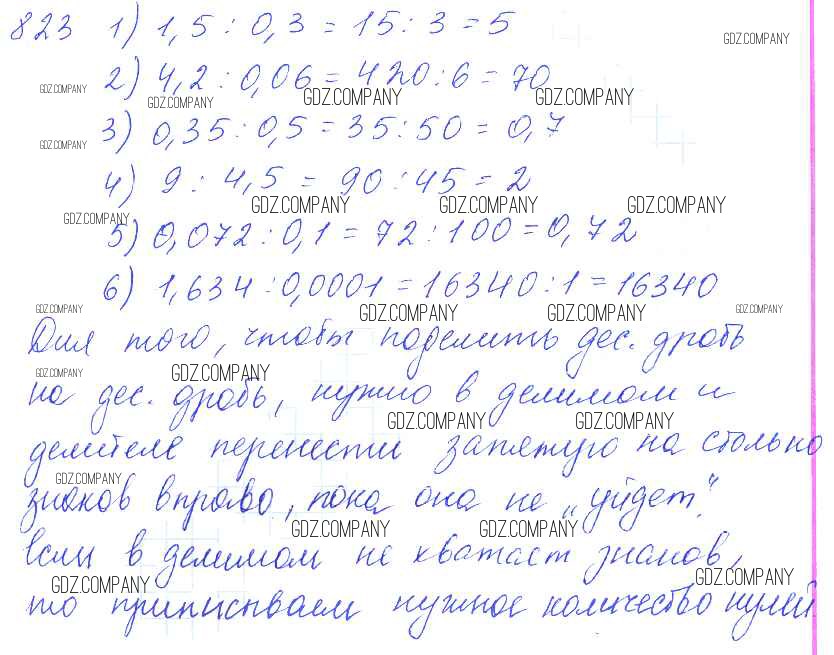 823 1) 1,5 : 0,3 = 15 : 3 = 5
GDZ.COMPANY
2) 4,2 : 0,06 = 420 : 6 = 70
GDZ.COMPANY
GDZ.COMPANY GDZ.COMPANY GDZ.COMPANY
3) 0,35 : 0,5 = 35 : 50 = 0,7
GDZ.COMPANY
4) 9 : 4,5 = 90 : 45 = 2
GDZ.COMPANY GDZ.COMPANY GDZ.COMPANY GDZ.COMPANY
5) 0,072 : 0,1 = 72 : 100 = 0,72
6) 1,634 : 0,0001 = 16340 : 1 = 16340
GDZ.COMPANY GDZ.COMPANY GDZ.COMPANY GDZ.COMPANY
Для того, чтобы поделить дес. дробь
GDZ.COMPANY GDZ.COMPANY
на дес. дробь, нужно в делимом и
GDZ.COMPANY GDZ.COMPANY
делителе перенести запятую на столько
GDZ.COMPANY
знаков вправо, пока она не „уйдет".
GDZ.COMPANY GDZ.COMPANY
Если в делимом не хватает знаков,
GDZ.COMPANY GDZ.COMPANY
то приписываем нужное количество нулей